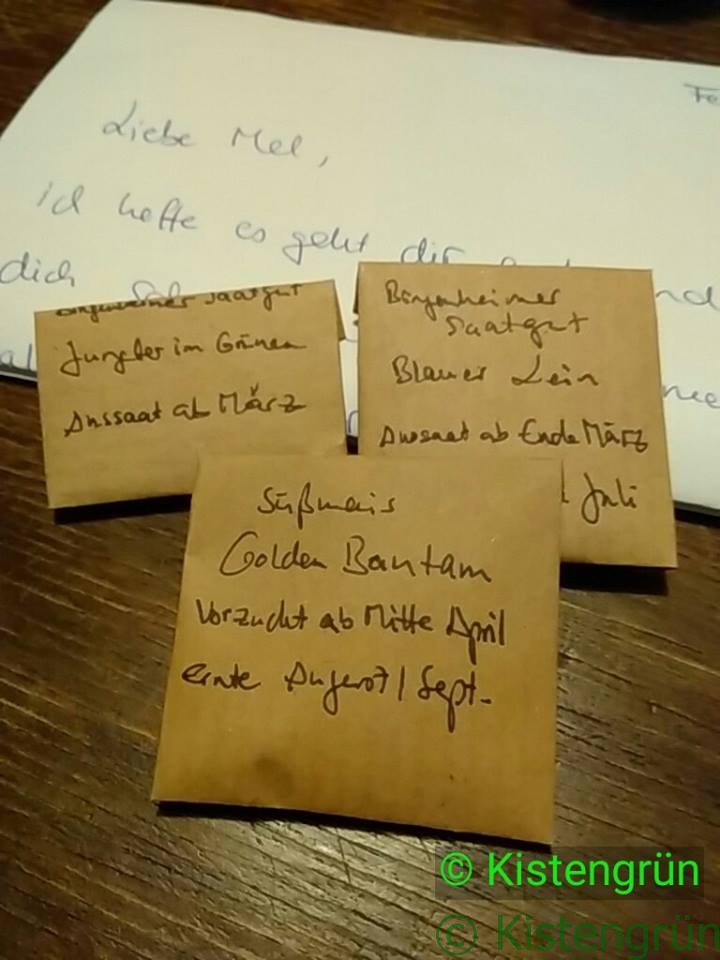 Fe
Liebe Mel,
ich hoffe es geht dir
dich
Saatgut
Jungfer im Grünen
Aussaat ab März
Bingenheimer
Saatgut
Blauer Lein
Aussaat ab Ende März
Juli
Süßmais
Golden Bantam
Vorzucht ab Mitte April
Ernte August / Sept.
© Kistengrün
© Kistengrün